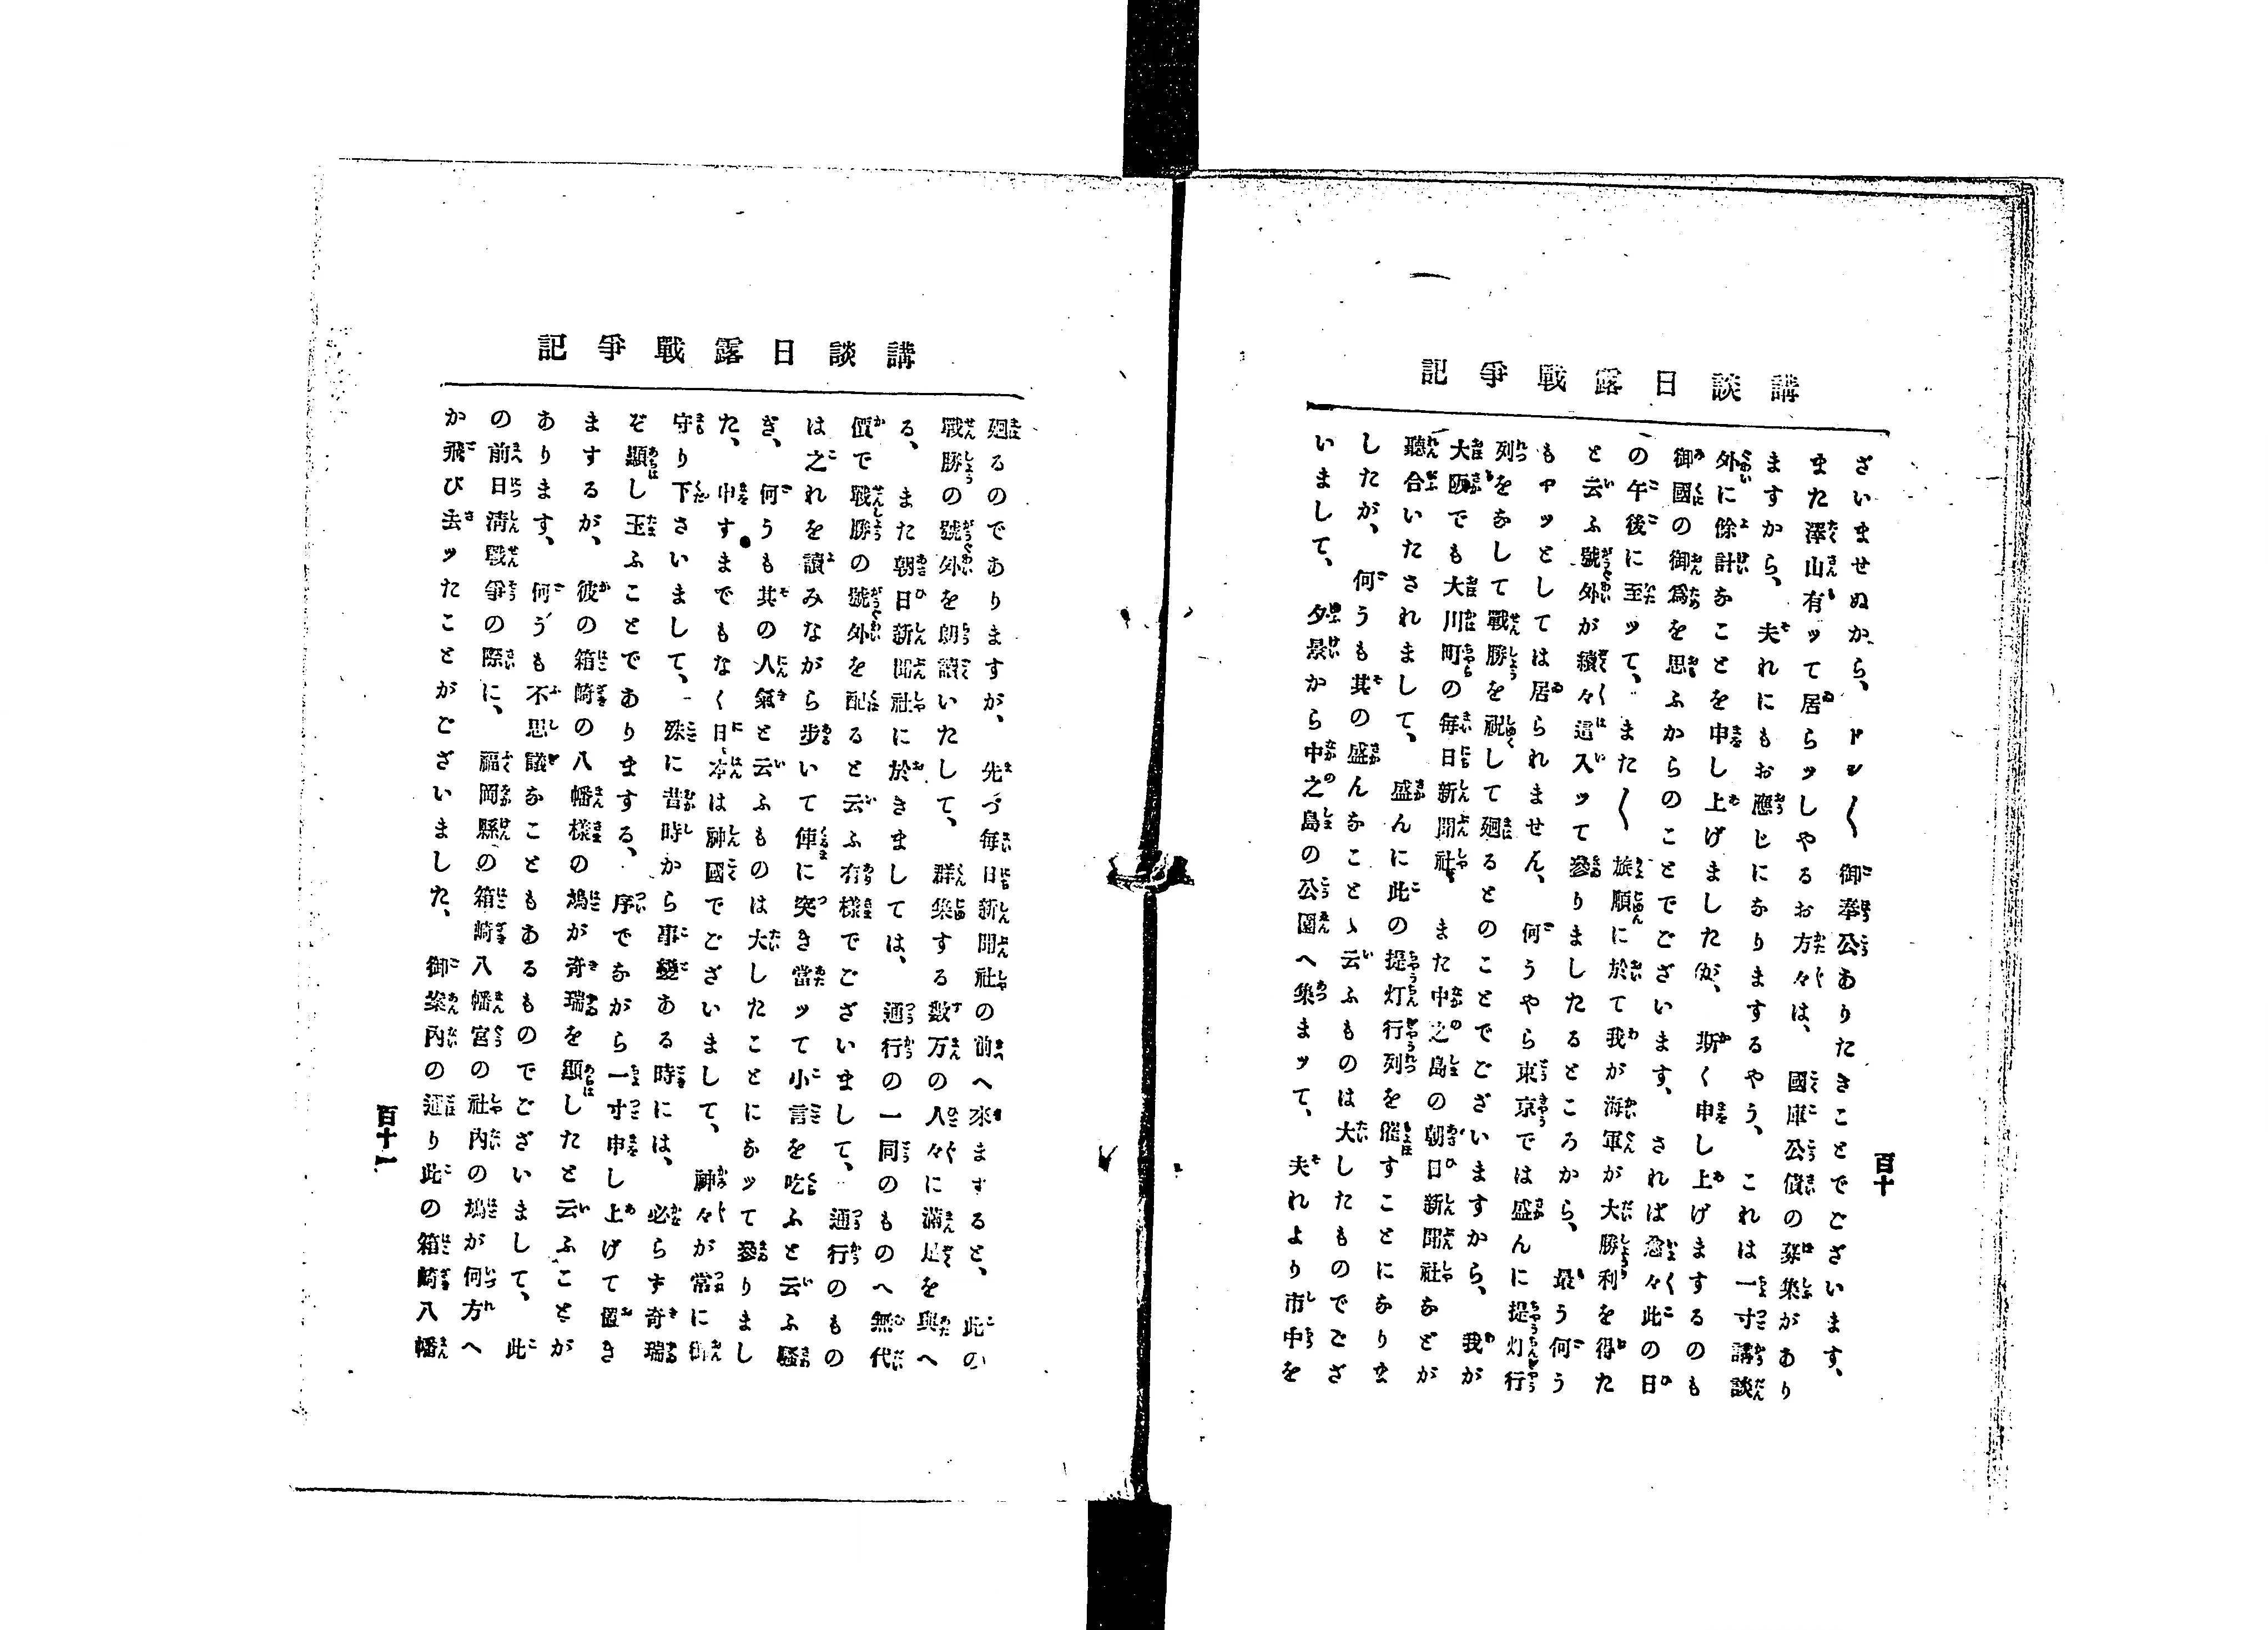 講談日露戰爭記
ざいませぬから、ドシ〱御奉公ありたきことでございます、
また澤山有ッて居らッしやるお方々は、國庫公債の募集があり
ますから、夫れにもお應じになりまするやう、これは一寸講談
外に餘計なことを申し上げましたが、斯く申し上げまするのも
御國の御爲を思ふからのことでございます、されば愈々此の日
の午後に至ッて、また〱旅順に於て我が海軍が大勝利を得た
と云ふ號外が續々這入ッて參りましたるところから、最う何う
もヤッとしては居られません、何うやら東京では盛んに提灯行
列をなして戰勝を祝して廻るとのことでございますから、我が
大阪でも大川町の毎日新聞社、また中之島の朝日新聞社などが
聽合いたされまして、盛んに此の提灯行列を催すことになりま
したが、何うも其の盛んなことゝ云ふものは大したものでござ
いまして、夕景から中之島の公園へ集まッて、夫れより市中を
百十
講談日露戰爭記
廻るのでありますが、先づ毎日新聞社の前へ來ますると、此の
戰勝の號外を朗讀いたして、群集する數万の人々に滿足を與へ
る、また朝日新聞社に於きましては、通行の一同のものへ無代
價で戰勝の號外を配ると云ふ有樣でございまして、通行のもの
は之れを讀みながら歩いて俥に突き當ッて小言を吃ふと云ふ騷
ぎ、何うも其の人氣と云ふものは大したことになッて參りまし
た、申すまでもなく日本は神國でございまして、神々が常に御
守り下さいまして、殊に昔時から事變ある時には、必らず奇瑞
ぞ顯し玉ふことであります る、序でながら一寸申し上げて置き
まするが、彼の箱崎の八幡樣の鳩が奇瑞を顯したと云ふことが
あります、何うも不思議なこともあるものでございまして、此
の前日淸戰爭の際に、福岡縣の箱崎八幡宮の社内の鳩が何方へ
か飛び去ッたことがございました、御案内の通り此の箱崎八幡
百十一